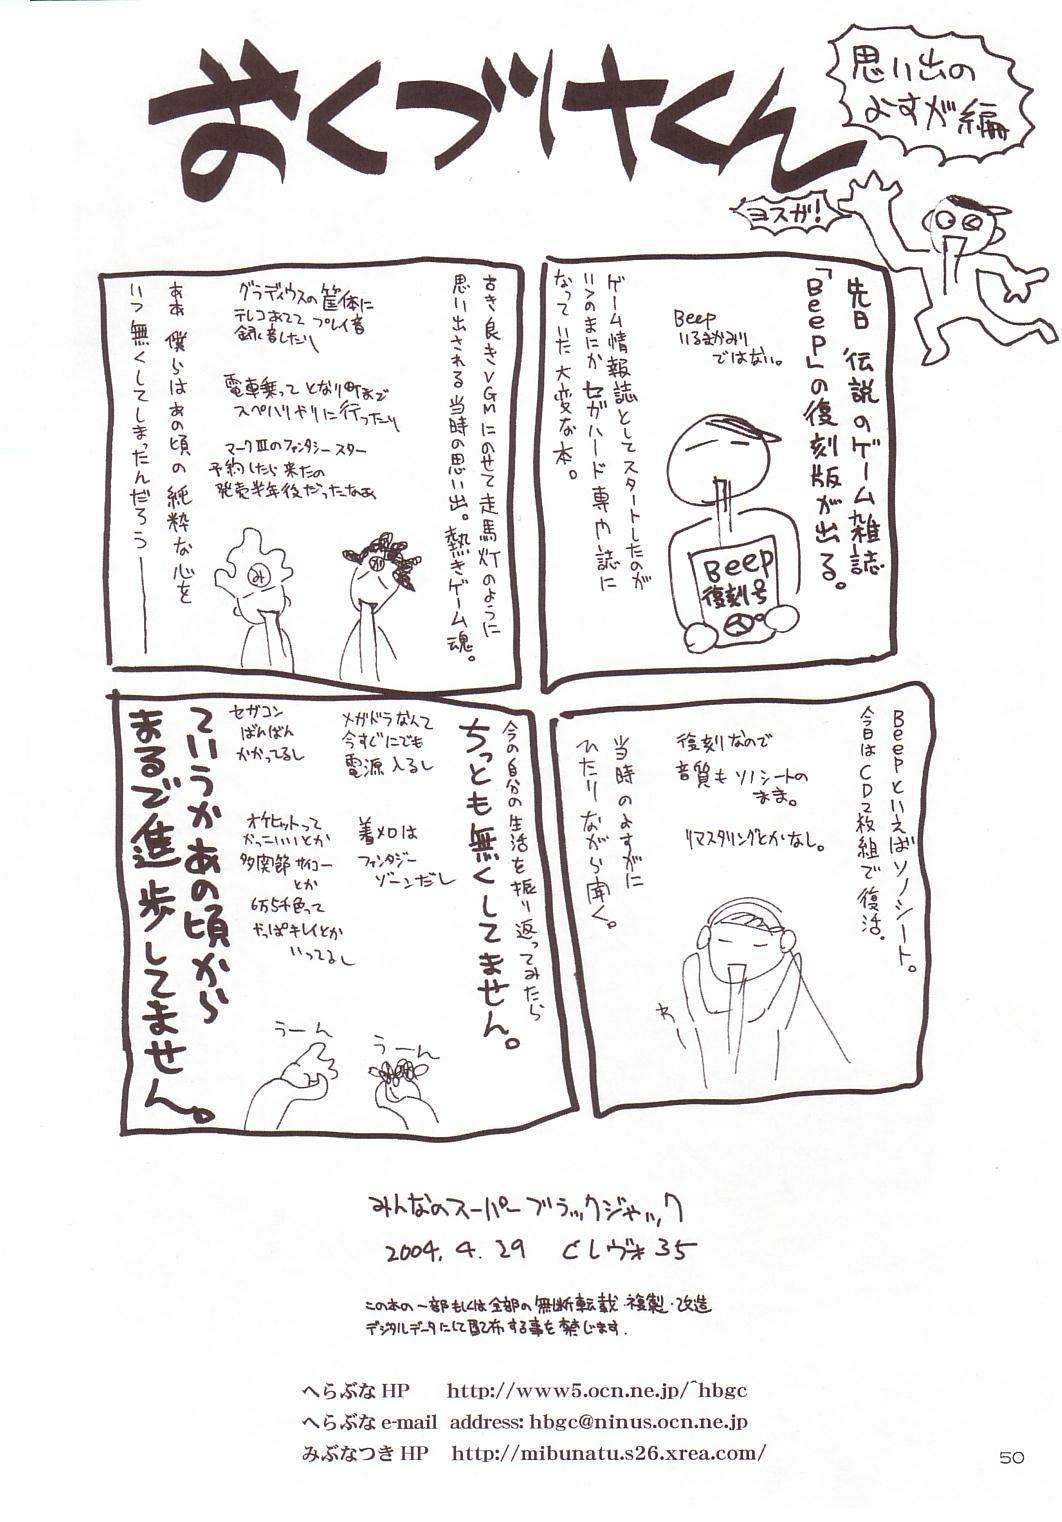 おくづけくん
思い出の
よすが編
ヨスガ!
先日 伝説のゲーム雑誌
「Beep」の復刻版が出る。
Beep
いるまかみり
ではない。
ゲーム情報誌としてスタートしたのが
いつのまにか セガハード専門誌に
なっていた大変な本。
Beep
復刻号
古き良きVGMにのせて走馬灯のように
思い出される 当時の思い出。熱きゲーム魂。
グラディウスの筐体に
テレコあてて プレイ音
録音したり
電車乗って となり町まで
スペハリドリに行ったり
マークⅢのファンタシースター
予約したら来たの
発売半年後だったなぁ
ああ 僕らはあの頃の純粋な心を
いつ無くしてしまったんだろう――
み
Beepといえばソノシート。
今日はCD2枚組で復活。
復刻なので
音質も ソノシートの
まま。
リマスタリングとかなし。
当時のよすがに
ひたりながら聞く。
今の自分の生活を振り返ってみたら
ちっとも無くしてません。
メガドラなんて
今すぐにでも
電源入るし
着メロは
ファンタジー
ゾーンだし
セガコン
ばんばん
かかってるし
オケヒットって
かっこいいとか
多関節サイコー
とか
6万5千色って
やっぱキレイとか
いってるし
ていうかあの頃から
まるで進歩してません。
うーん
うーん
みんなのスーパーブラックジャック
2004.4.29 CLヴォ35
この本の一部もしくは全部の無断転載・複製・改造
デジタルデータにして配布する事を禁じます.
へらぶなHP http://www5.ocn.ne.jp/~hbgc
へらぶなe-mail address: hbgc@ninus.ocn.ne.jp
みぶなつきHP http://mibunatu.s26.xrea.com/
50